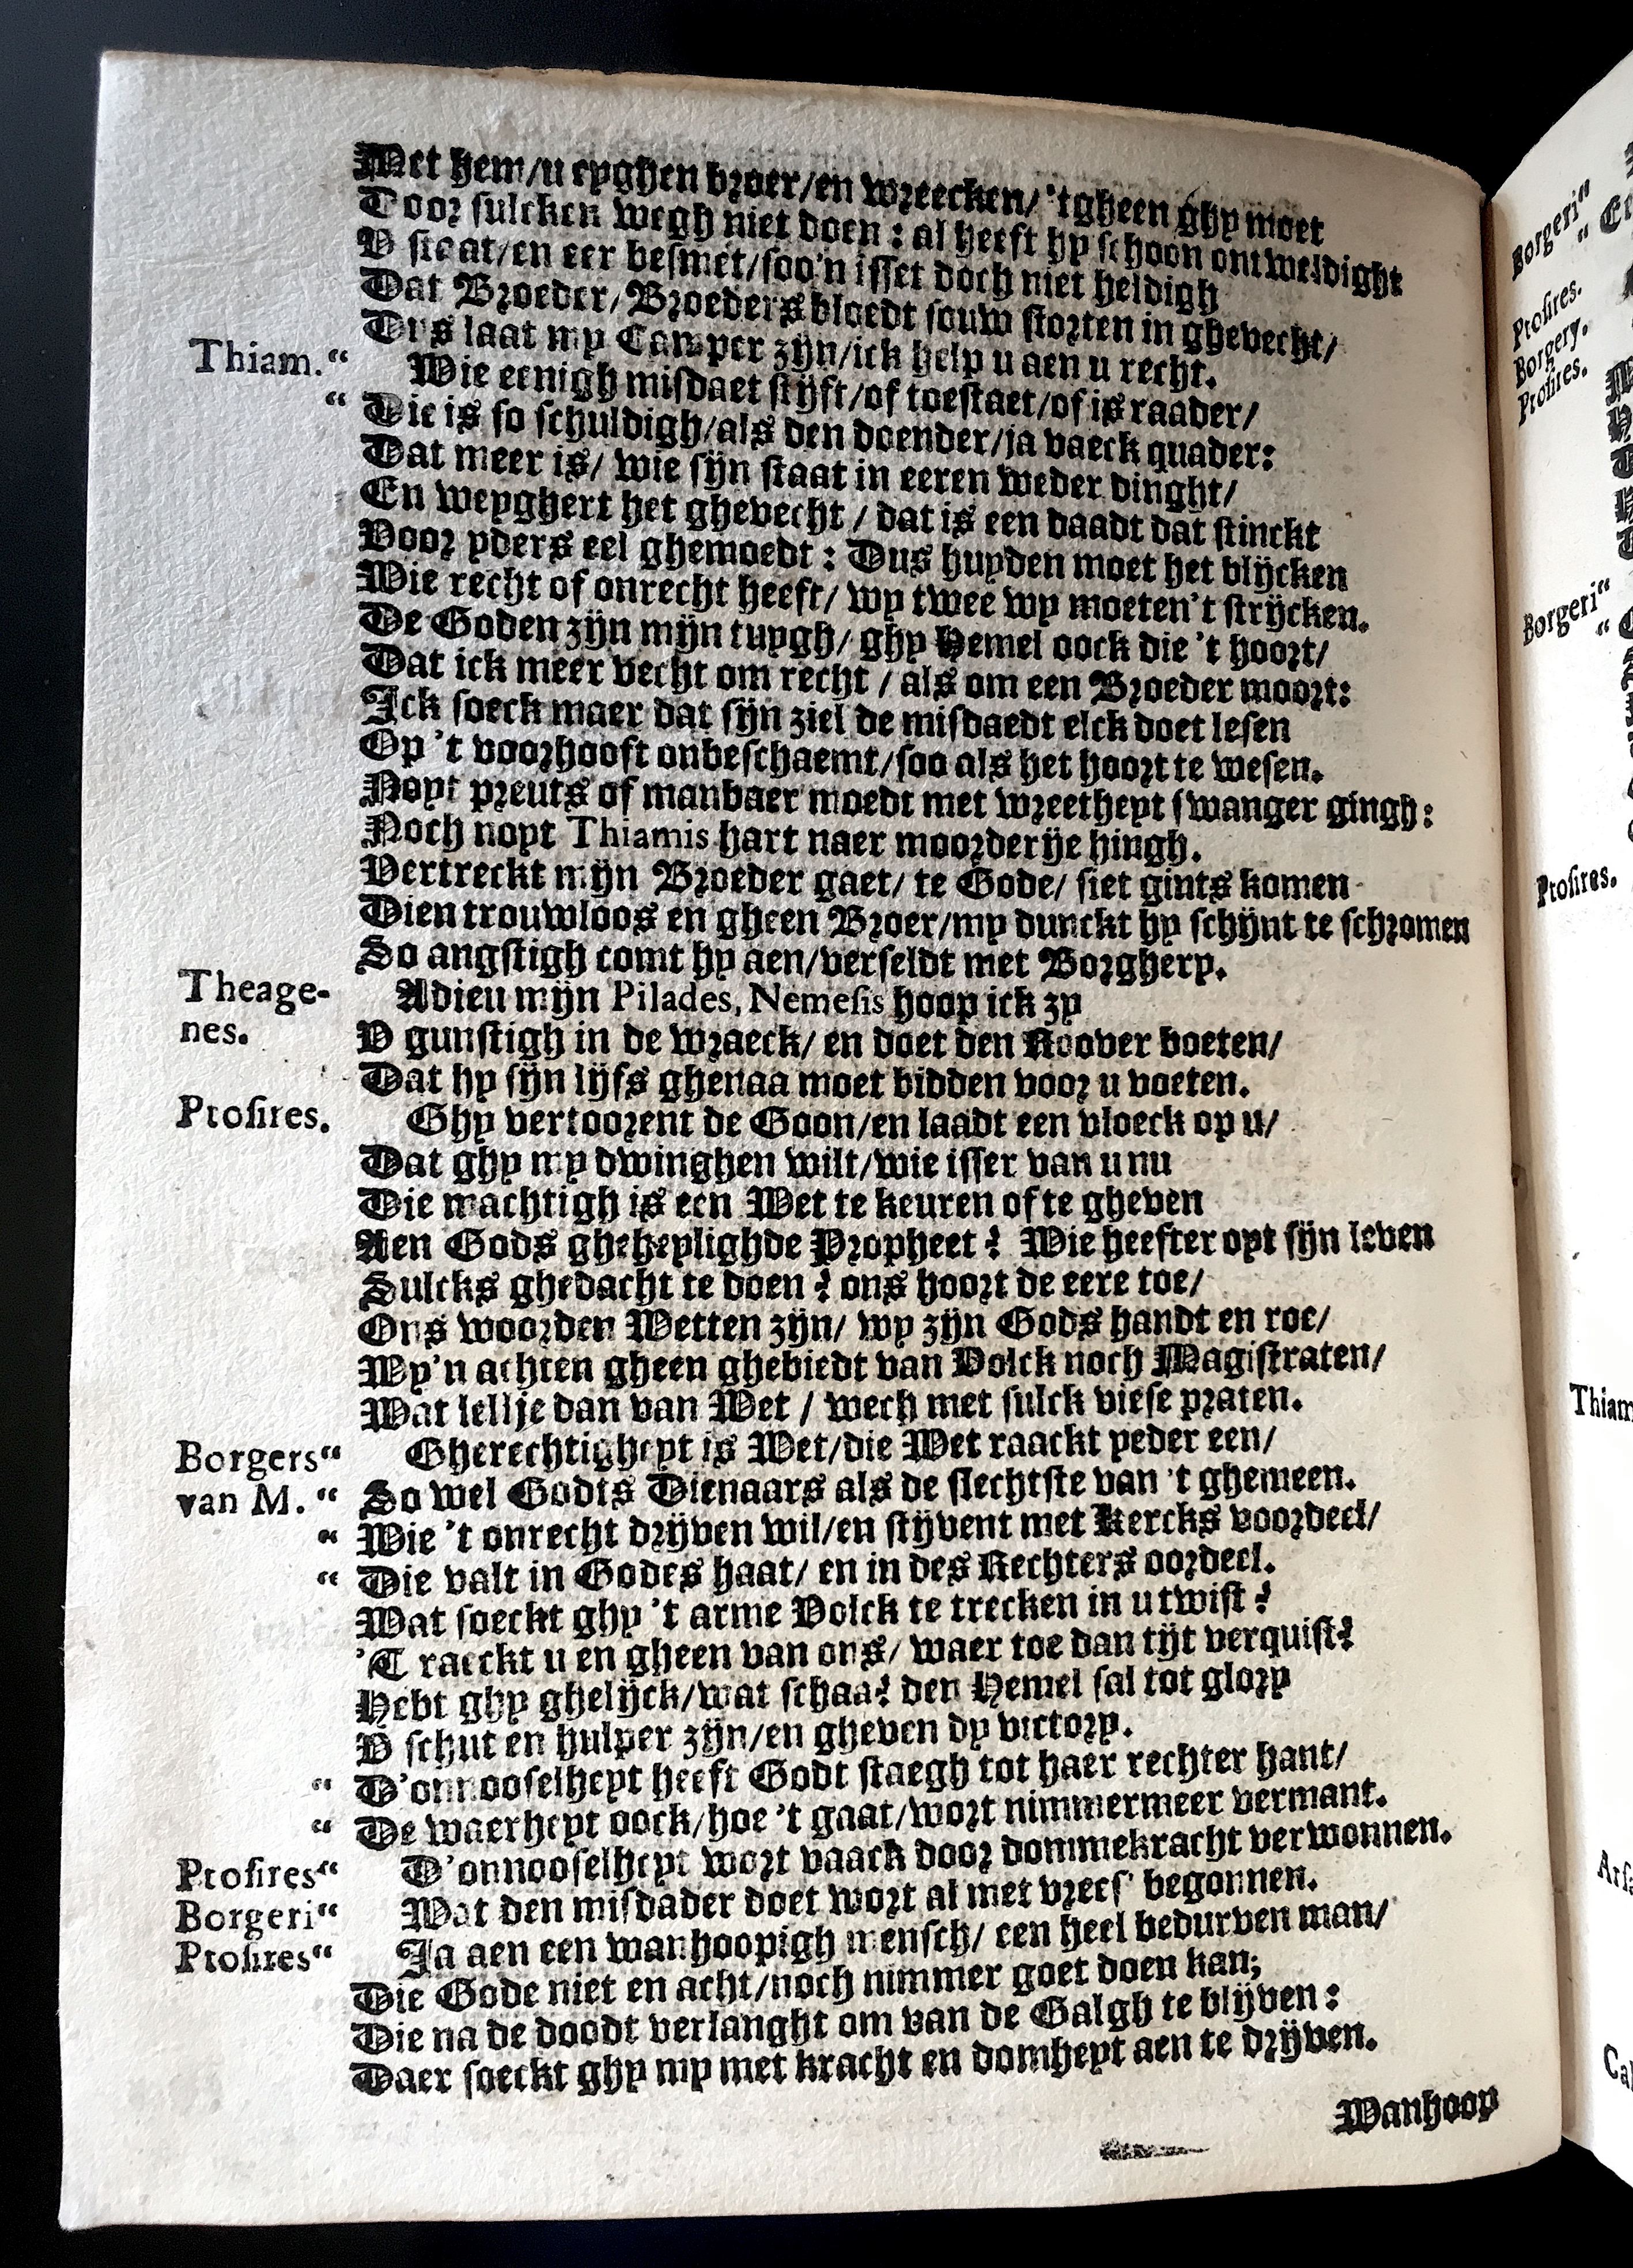 Met hem/u eyghen broer/en wreecken/ 'tgheen ghy moet
Door sulcken wegh niet doen : al heeft hy schoon ontweldight
V staat/en eer besmet/soo'n isset doch niet heldigh
Dat Broeder/ Broeders bloedt souw storten in ghevecht/
Dus laat my Camper zijn/ick help u aen u recht.
Thiam.“ Wie eenigh misdaet stijft/of toestaet/of is raader/
“ Die is so schuldigh/als den doender/ja vaeck quader:
Dat meer is/ wie sijn staat in eeren weder dinght/
En weyghert het ghevecht / dat is een daadt dat stinckt
Voor yders eel ghemoedt : Dus huyden moet het blijcken
Wie recht of onrecht heeft/ wy twee wy moeten't strijcken.
De Goden zijn mijn tuygh/ ghy Hemel oock die 't hoort/
Dat ick meer vecht om recht / als om een Broeder moort:
Ick soeck maer dat sijn ziel de misdaedt elck doet lesen
Op 't voorhooft onbeschaemt/soo als het hoort te wesen.
Noyt preuts of manbaer moedt met wreetheyt swanger gingh:
Noch noyt Thiamis hart naer moorderije hingh.
Vertreckt mijn Broeder gaet/ te Gode/ siet gints komen
Dien trouwloos en gheen Broer/my dunckt hy schijnt te schromen
So angstigh comt hy aen/verseldt met Borghery.
Theage-nes. Adieu mijn Pilades, Nemesis hoop ick zy
V gunstigh in de wraeck/ en doet den Roover boeten/
Dat hy sijn lijfs ghenaa moet bidden voor u voeten.
Ptosires. Ghy vertoorent de Goon/en laadt een vloeck op u/
Dat ghy my dwinghen wilt/wie isser van u nu
Die machtigh is een Wet te keuren ofte gheven
Aen Gods gheheylighde Propheet? Wie heefter oyt sijn leven
Sulcks ghedacht te doen? ons hoort de eere toe/
Ons woorden Wetten zijn/ wy zijn Gods handt en roe/
Wy'n achten gheen ghebiedt van Volck noch Magistraten/
Wat lellje dan van Wet / wech met sulck viese praten.
Borgers“ Gherechtigheyt is Wet/die Wet raackt yeder een/
van M.“ So wel Godts Dienaars als de slechtste van 't ghemeen.
“ Wie 't onrecht drijven wil/en stijvent met Kercks voordeel/
“ Die valt in Godes haat/ en in des Rechters oordeel.
Wat soeckt ghy 't arme Volck te trecken in u twist?
'T raeckt u en gheen van ons/ waer toe dan tijt verquist?
Hebt ghy ghelijck/wat schaa? den Hemel sal tot glory
V schut en hulper zijn/en gheven dy victory.
“ D'onnooselheyt heeft Godt staegh tot haer rechter hant/
“ De waerheyt oock/hoe 't gaat/wort nimmermeer vermant.
Ptosires“ D'onnooselheyt wort vaack door dommekracht verwonnen.
Borgeri“ Wat den misdader doet wort al met vrees' begonnen.
Ptosires“ Ja aen een wanhoopigh mensch/ een heel bedurven man/
Die Gode niet en acht/noch nimmer goet doen kan;
Die na de doodt verlanght om van de Galgh te blijven :
Daer soeckt ghy my met kracht en domheyt aen te drijven.
Wanhoop
Borgeri“
“ Ee
Ptosires.
Borgery.
Ptosires.
Borgeri“
“
Ptosires.
Thiam